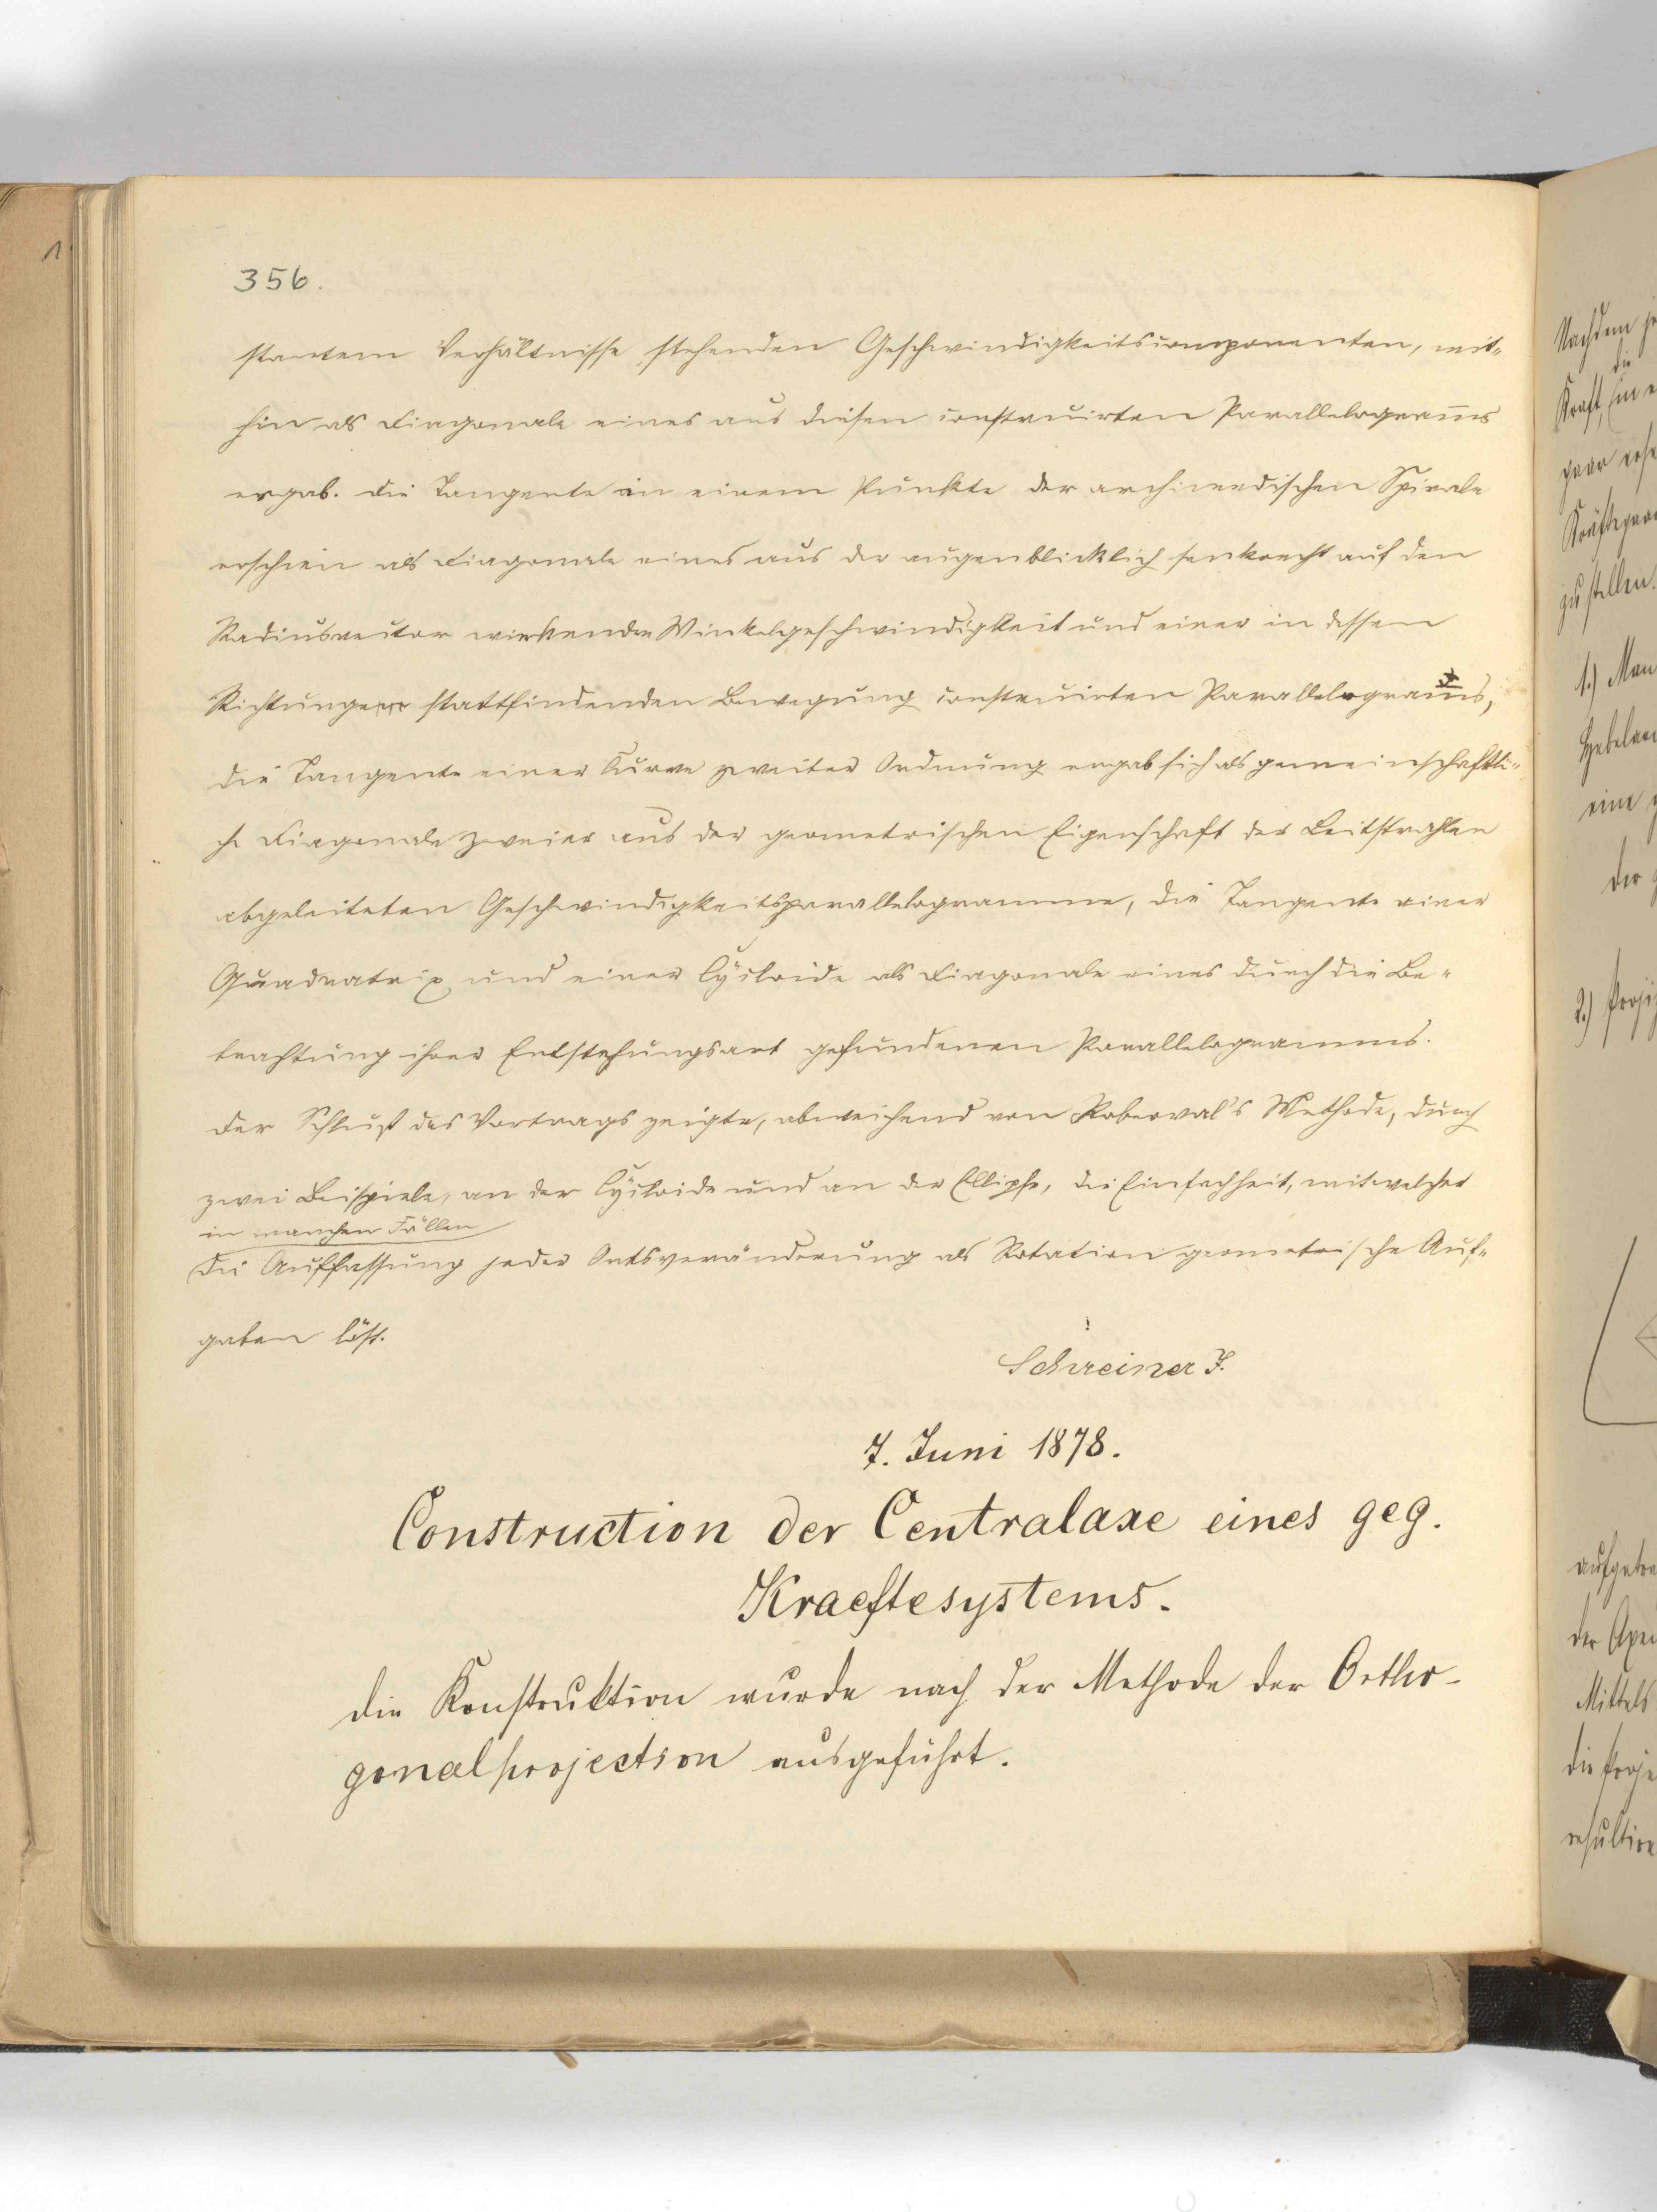 356.
stantem Verhältnisse stehenden Geschwindigkeitscomponenten, mit-
hin als Diagonale eines aus diesen construirten Parallelogram̅s
ergab. Die Tangente in einem Punkte der archimedischen Spirale
erschien als Diagonale eines aus der augenblicklich senkrecht auf den
Radiusvector wirkenden Winkelgeschwindigkeit und einer in dessen
Richtung stattfindenden Bewegung construirten Parallelogram̅s,
die Tangente einer Curve zweiter Ordnung ergab sich als gemeinschaftli-
che Diagonale zweier aus der geometrischen Eigenschaft der Leitstrahlen
abgeleiteten Geschwindigkeitsparallelogramme, die Tangente einer
Quadratrix und einer Cycloide als Diagonale eines durch die Be-
trachtung ihrer Entstehungsart gefundenen Parallelogramms.
Der Schluß des Vortrags zeigte, abweichend von Roberval's Methode, durch
zwei Beispiele, an der Cycloide und an der Ellipse, die Einfachheit, mit welcher
in manchen Fällen
die Auffassung jeder Ortsveränderung als Rotation geometrische Auf-
gaben löst.
Schreiner J.
7. Juni 1878.
Construction der Centralaxe eines geg.
Kraeftesystems.
Die Konstruktion wurde nach der Methode der Ortho-
gonalprojection ausgeführt.
Nachdem
die
Kraft,
zu stellen.
1.) Man
eine
der
2.)
der Axen
Mittels
die